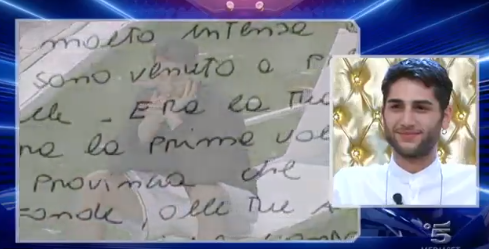 molto intensa
sono venuto a
Era la tue
la prima vol
provincia che
onde, alle tue
5
MEDIASET